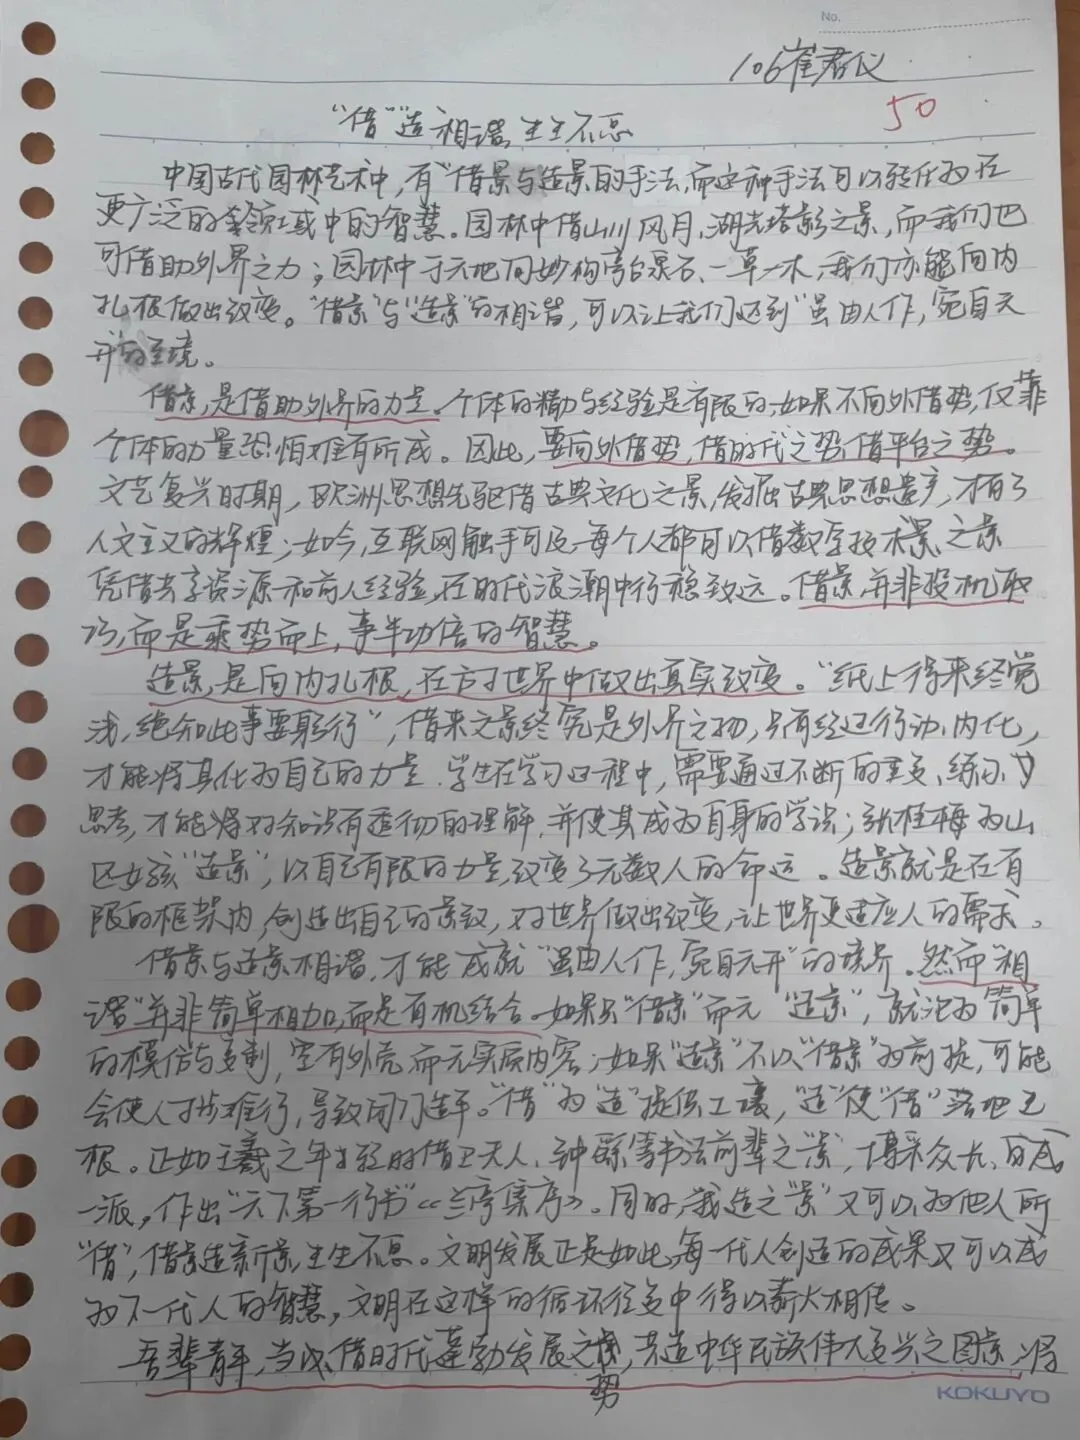 No.
106崔君仪
50
“借”“造”相谐,生生不息
中国古代园林艺术中,有“借景与造景的手法,而这种手法可以转化为在
更广泛的领域中的智慧。园林中借山川风月、湖光塔影之景,而我们也
可借助外界之力;园林中于天地间妙构亭台泉石、一草一木,我们亦能向内
扎根做出改变。“借景”与“造景”的相谐,可以让我们达到“虽由人作,宛自天
开的至境。
借景,是借助外界的力量。个体的精力与经验是有限的,如果不向外借势,仅靠
个体的力量恐怕难有所成。因此,要向外借势,借时代之势,借平台之势。
文艺复兴时期,欧洲思想先驱借古典文化之景,发掘古典思想遗产,才有了
人文主义的辉煌;如今,互联网触手可及,每个人都可以借数字技术之景
凭借共享资源和前人经验,在时代浪潮中行稳致远。借景,并非投机取
巧,而是乘势而上,事半功倍的智慧。
造景,是向内扎根,在方寸世界中做出真实改变。“纸上得来终觉
浅,绝知此事要躬行”,借来之景终究是外界之物,只有经过行动、内化,
才能将其化为自己的力量。学生在学习过程中,需要通过不断的重复、练习、
思考,才能将对知识有透彻的理解,并使其成为自身的学识;张桂梅为山
区女孩“造景”,以自己有限的力量,改变了无数人的命运。造景就是在有
限的框架内,创造出自己的景致,对世界做出改变,让世界更适应人的需求。
借景与造景相谐,才能成就“虽由人作,宛自天开”的境界。然而“相
谐”并非简单相加,而是有机结合。如果只“借景”而无“造景”,就沦为简单
的模仿与复制,空有外壳而无实质内容;如果“造景”不以“借景”为前提,可能
会使人寸步难行,导致闭门造车。“借”为“造”提供土壤,“造”使“借”落地生
根。正如王羲之年轻时借卫夫人、钟繇等书法前辈之“景”,博采众长、自成
一派,作出“天下第一行书”《兰亭集序》。同时,我造之“景”又可以为他人所
“借”,借景造新景,生生不息。文明发展正是如此,每一代人创造的成果又可以成
为下一代人的智慧,文明在这样的循环往复中得以薪火相传。
吾辈青年,当以借时代蓬勃发展之势,共造中华民族伟大复兴之图景,将
KOKUYO